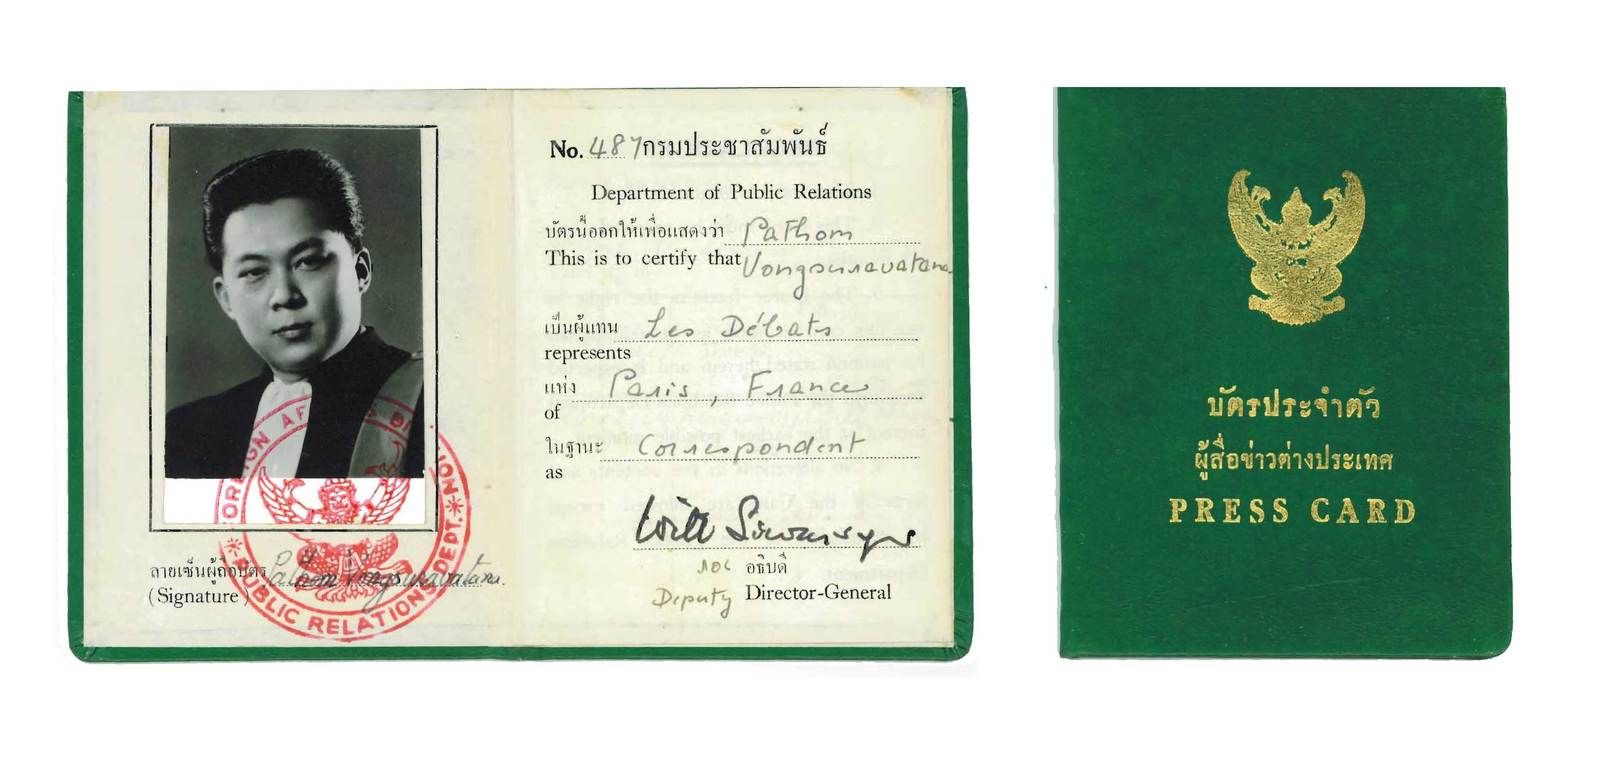 FOREIGN AFFAIRS DIVISION
PUBLIC RELATIONS DEPT.
ลายเซ็นผู้ถือบัตร Pathom Vongsuravatana.
(Signature)
No. 487 กรมประชาสัมพันธ์
Department of Public Relations
บัตรนี้ออกให้เพื่อแสดงว่า Pathom
This is to certify that Vongsuravatana
เป็นผู้แทน Les Débats
represents
แห่ง Paris, France
of
ในฐานะ Correspondent
as
รอง อธิบดี
Deputy Director-General
บัตรประจำตัว
ผู้สื่อข่าวต่างประเทศ
PRESS CARD